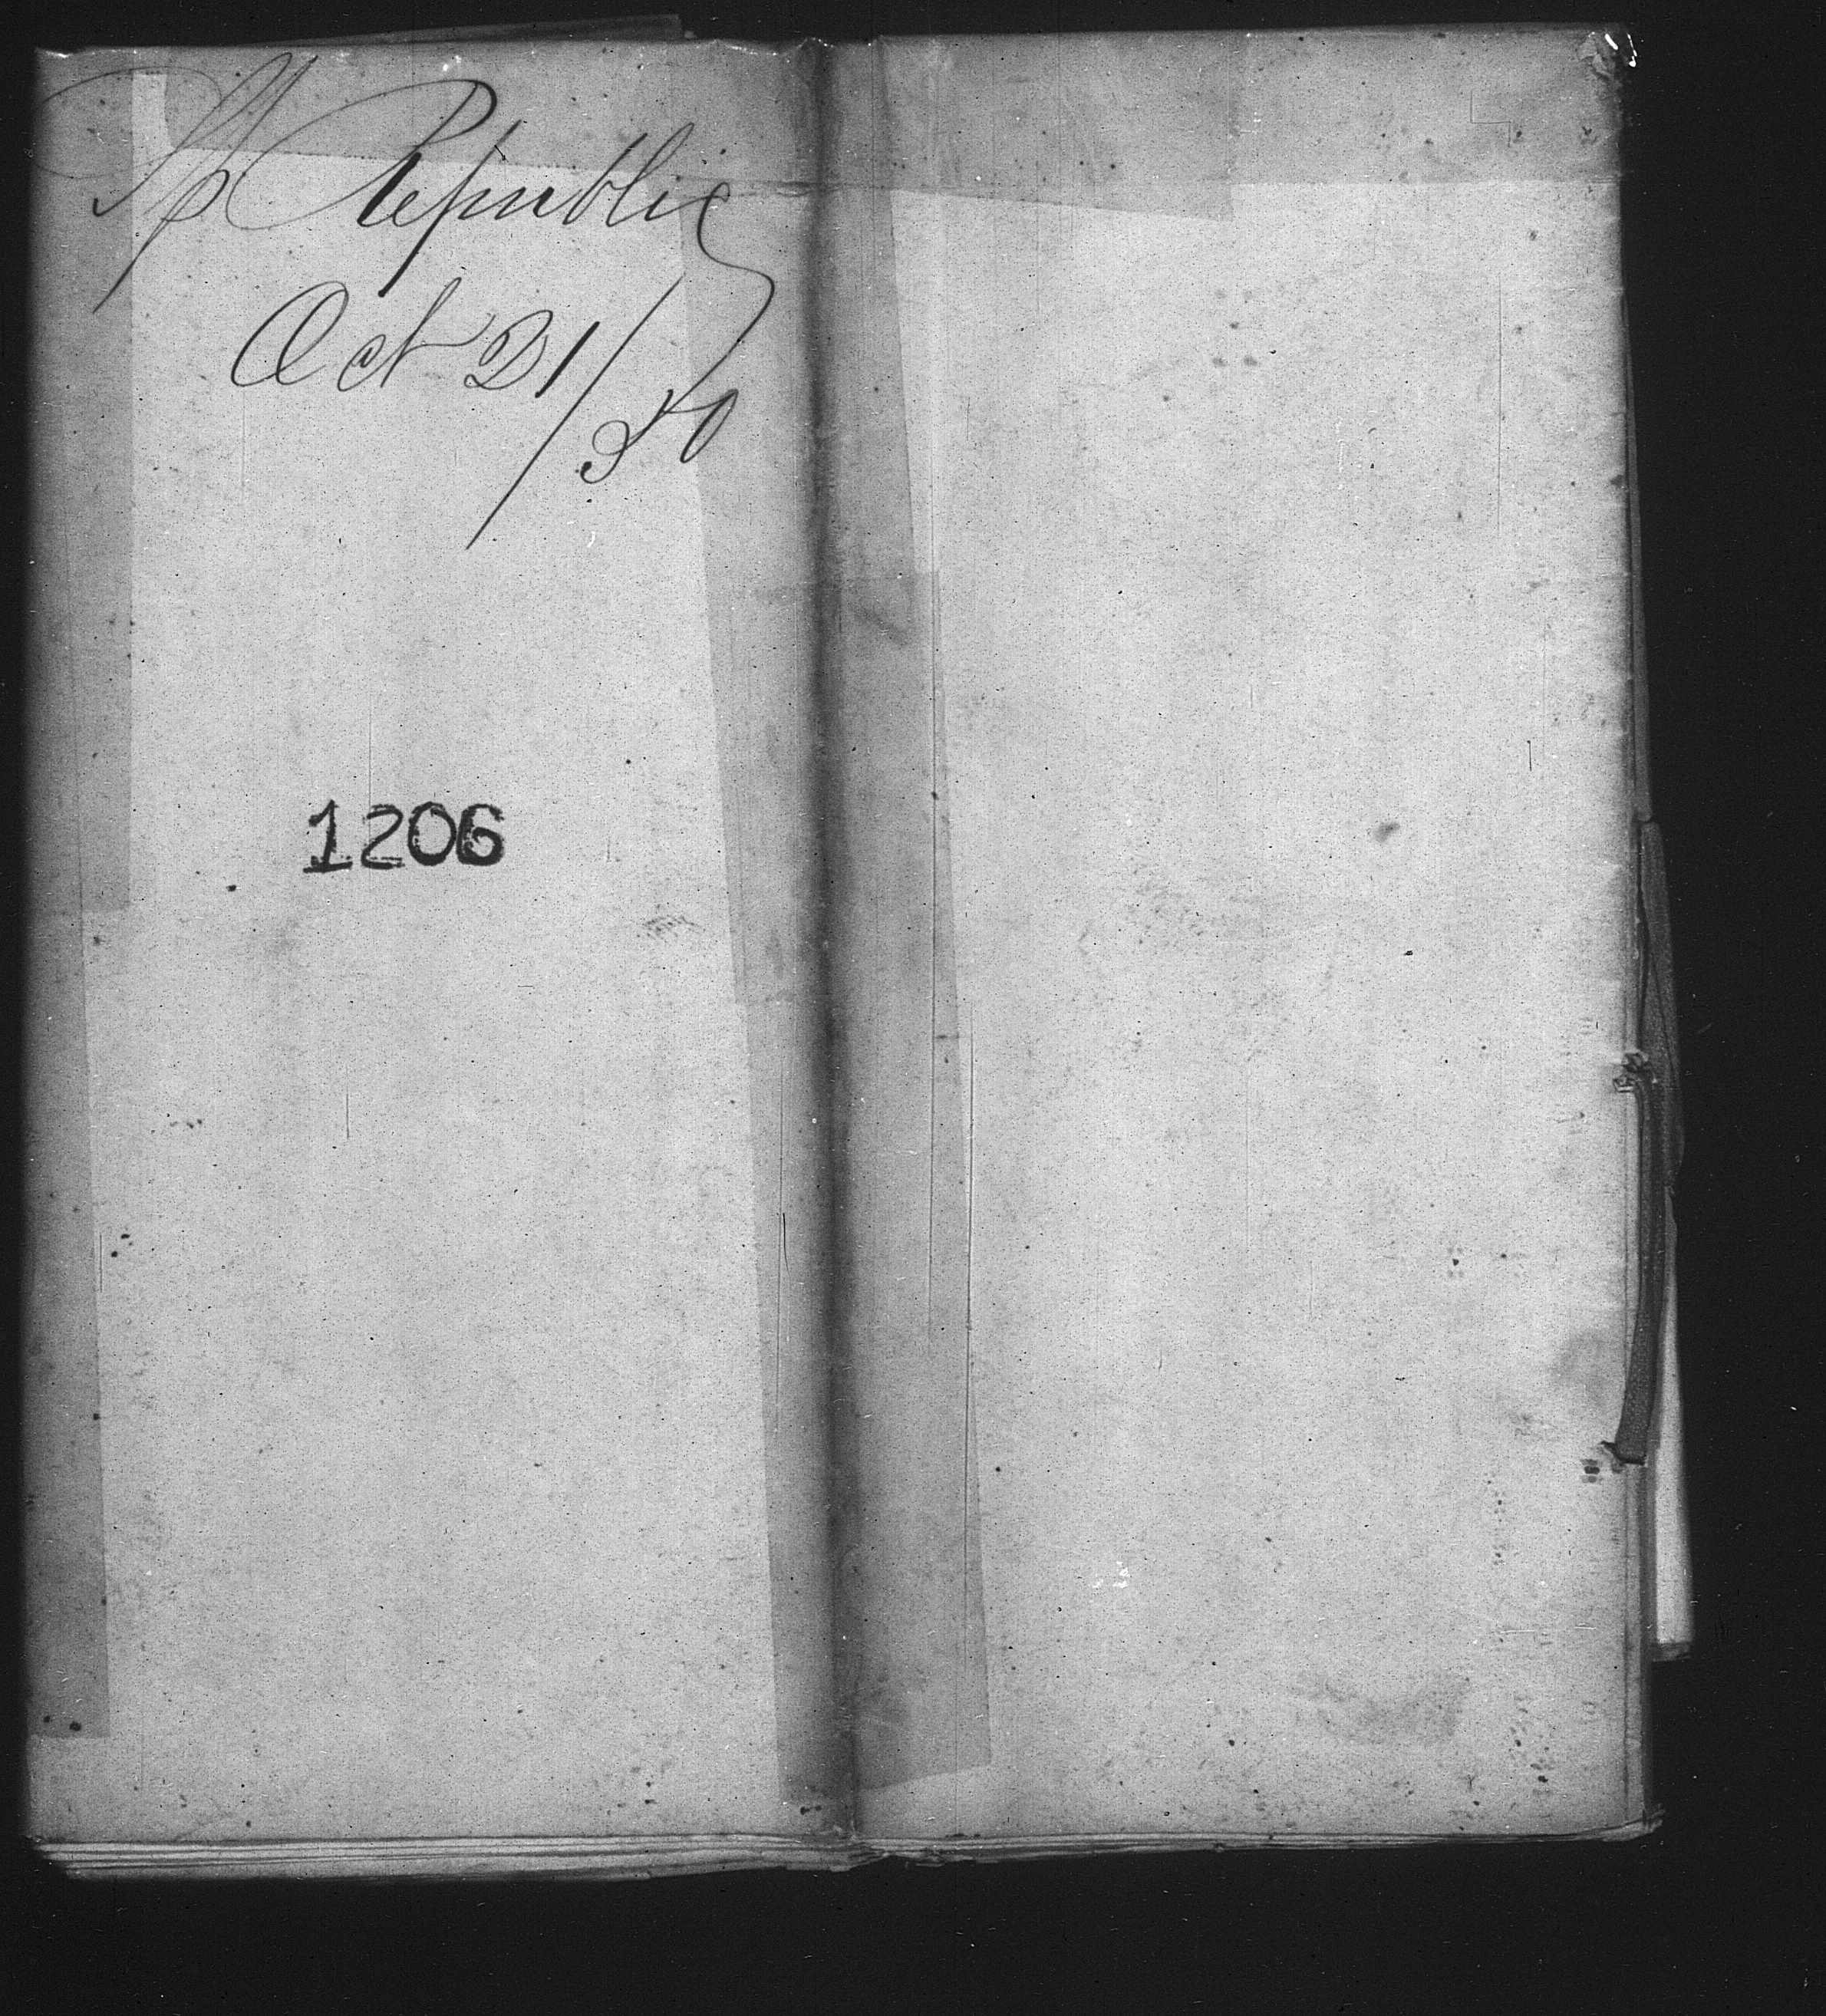 Sp Republic
Oct 21/80
1206